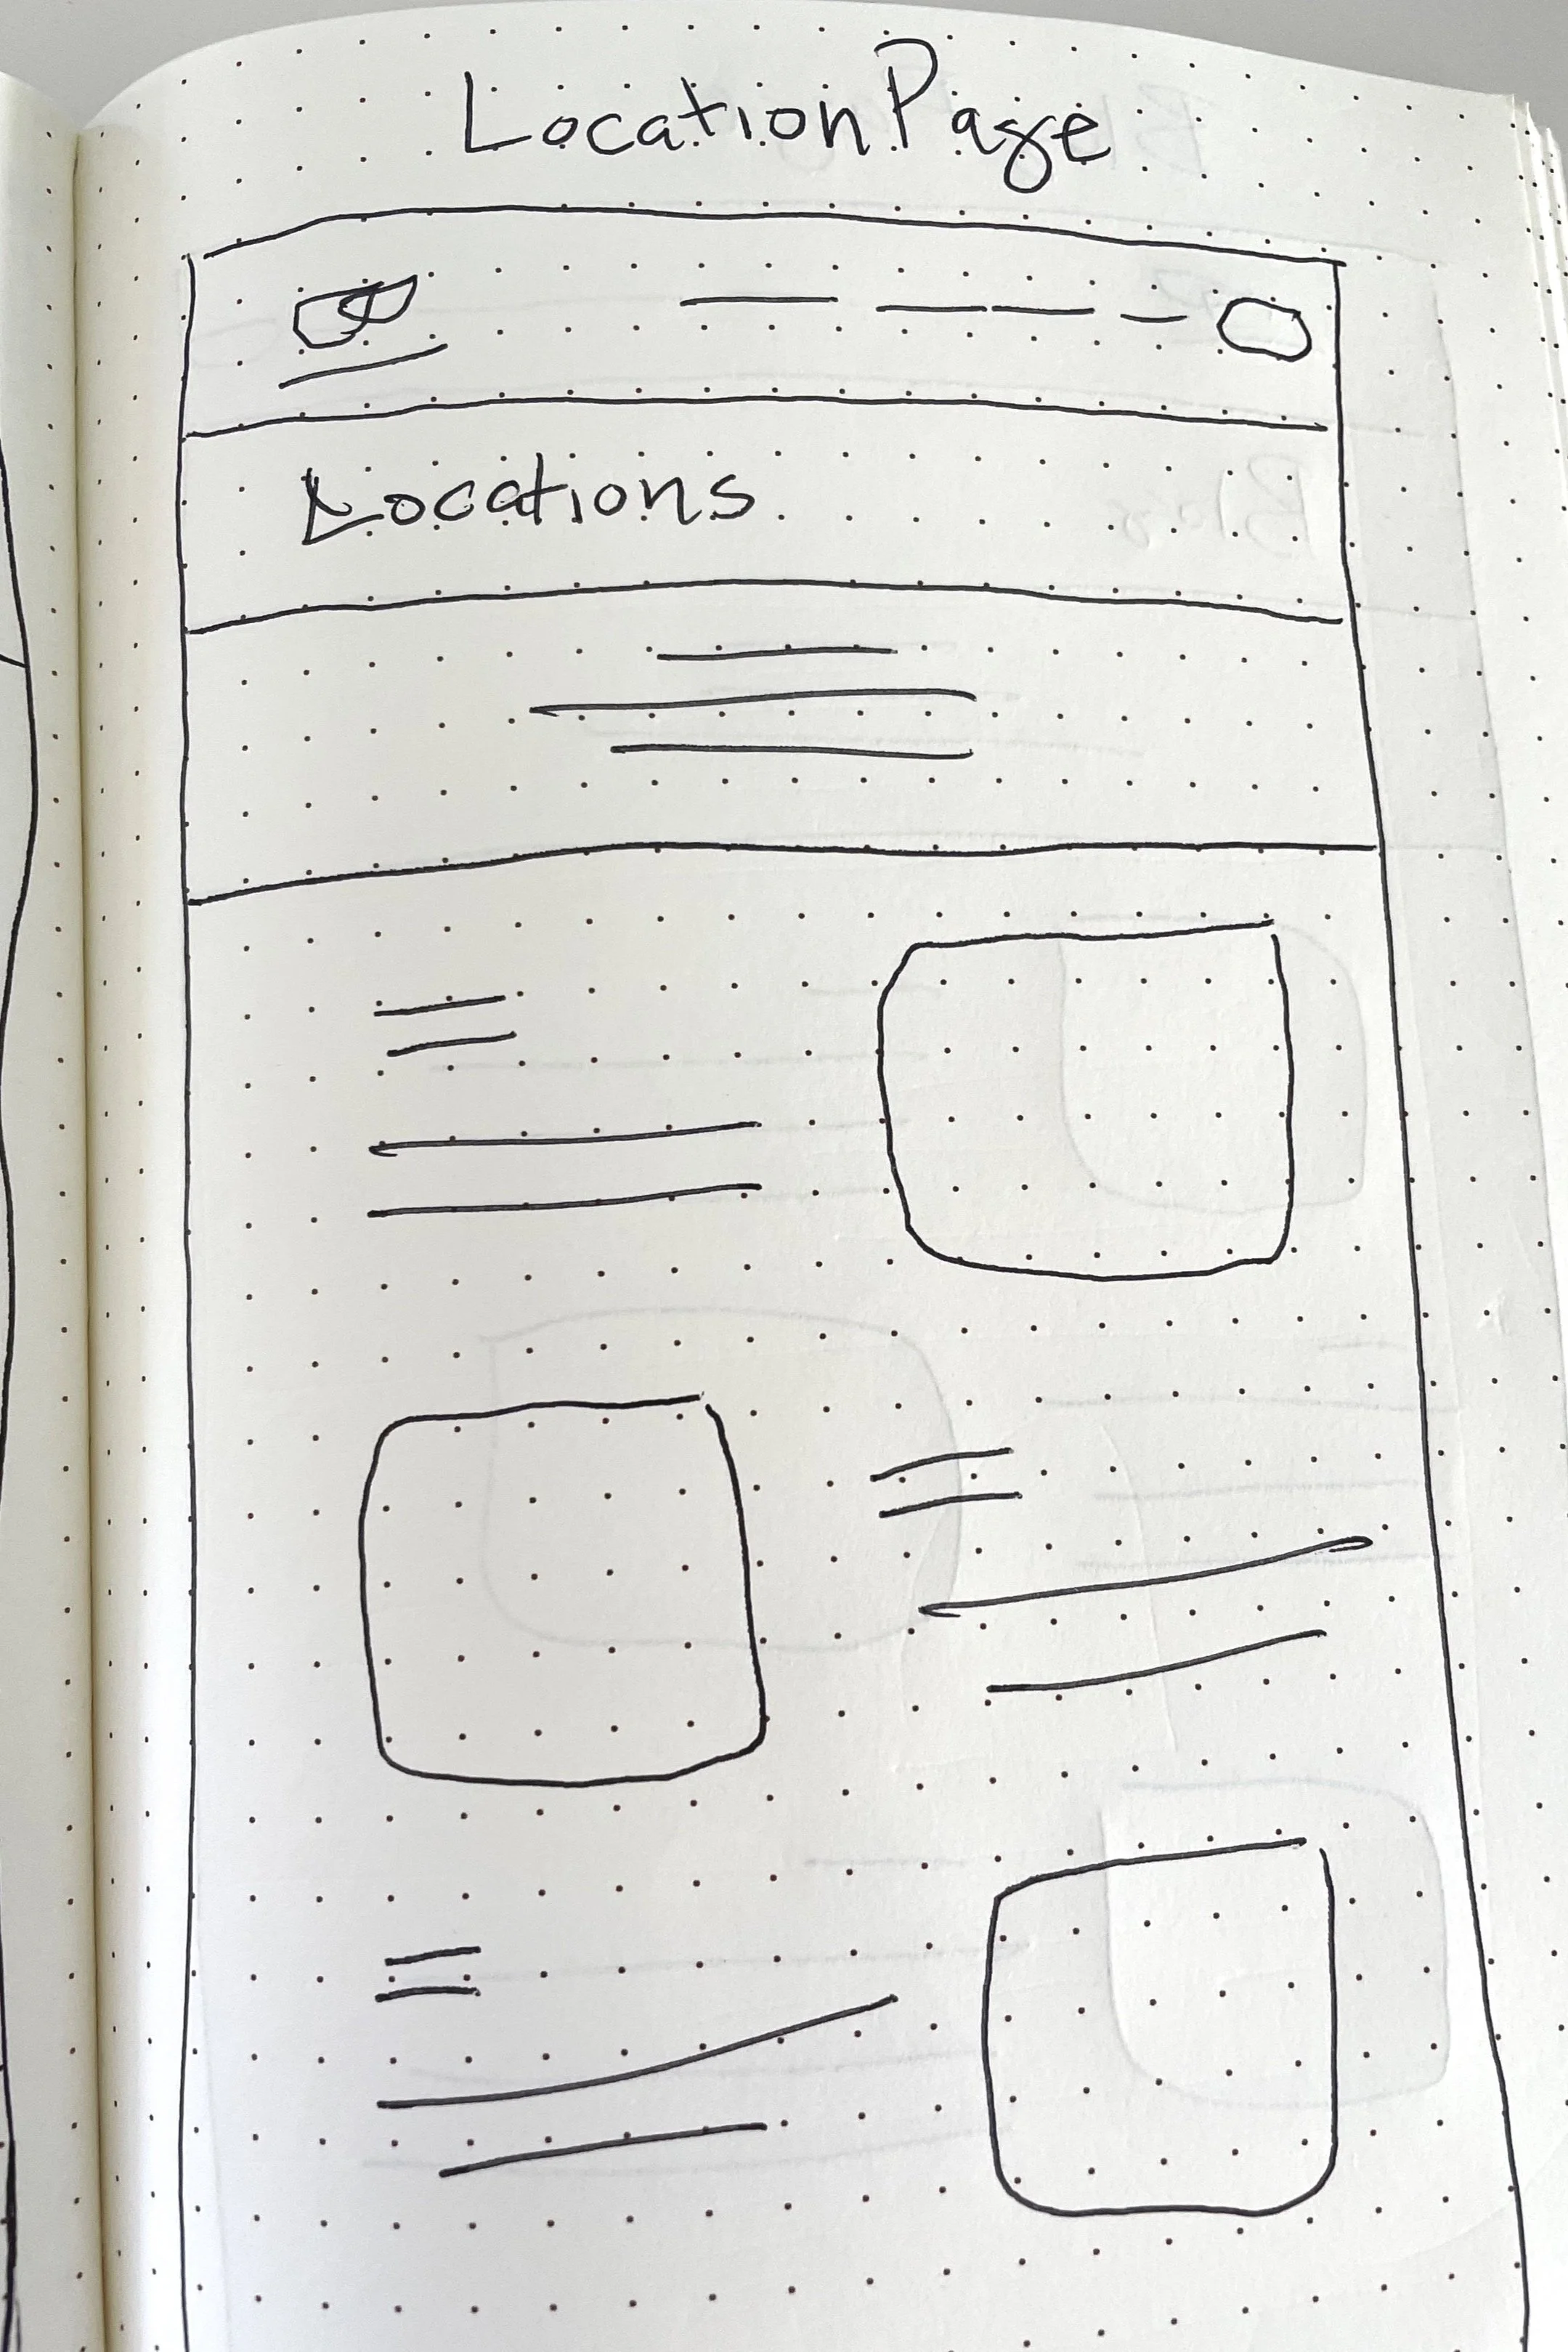 Location Page
Locations